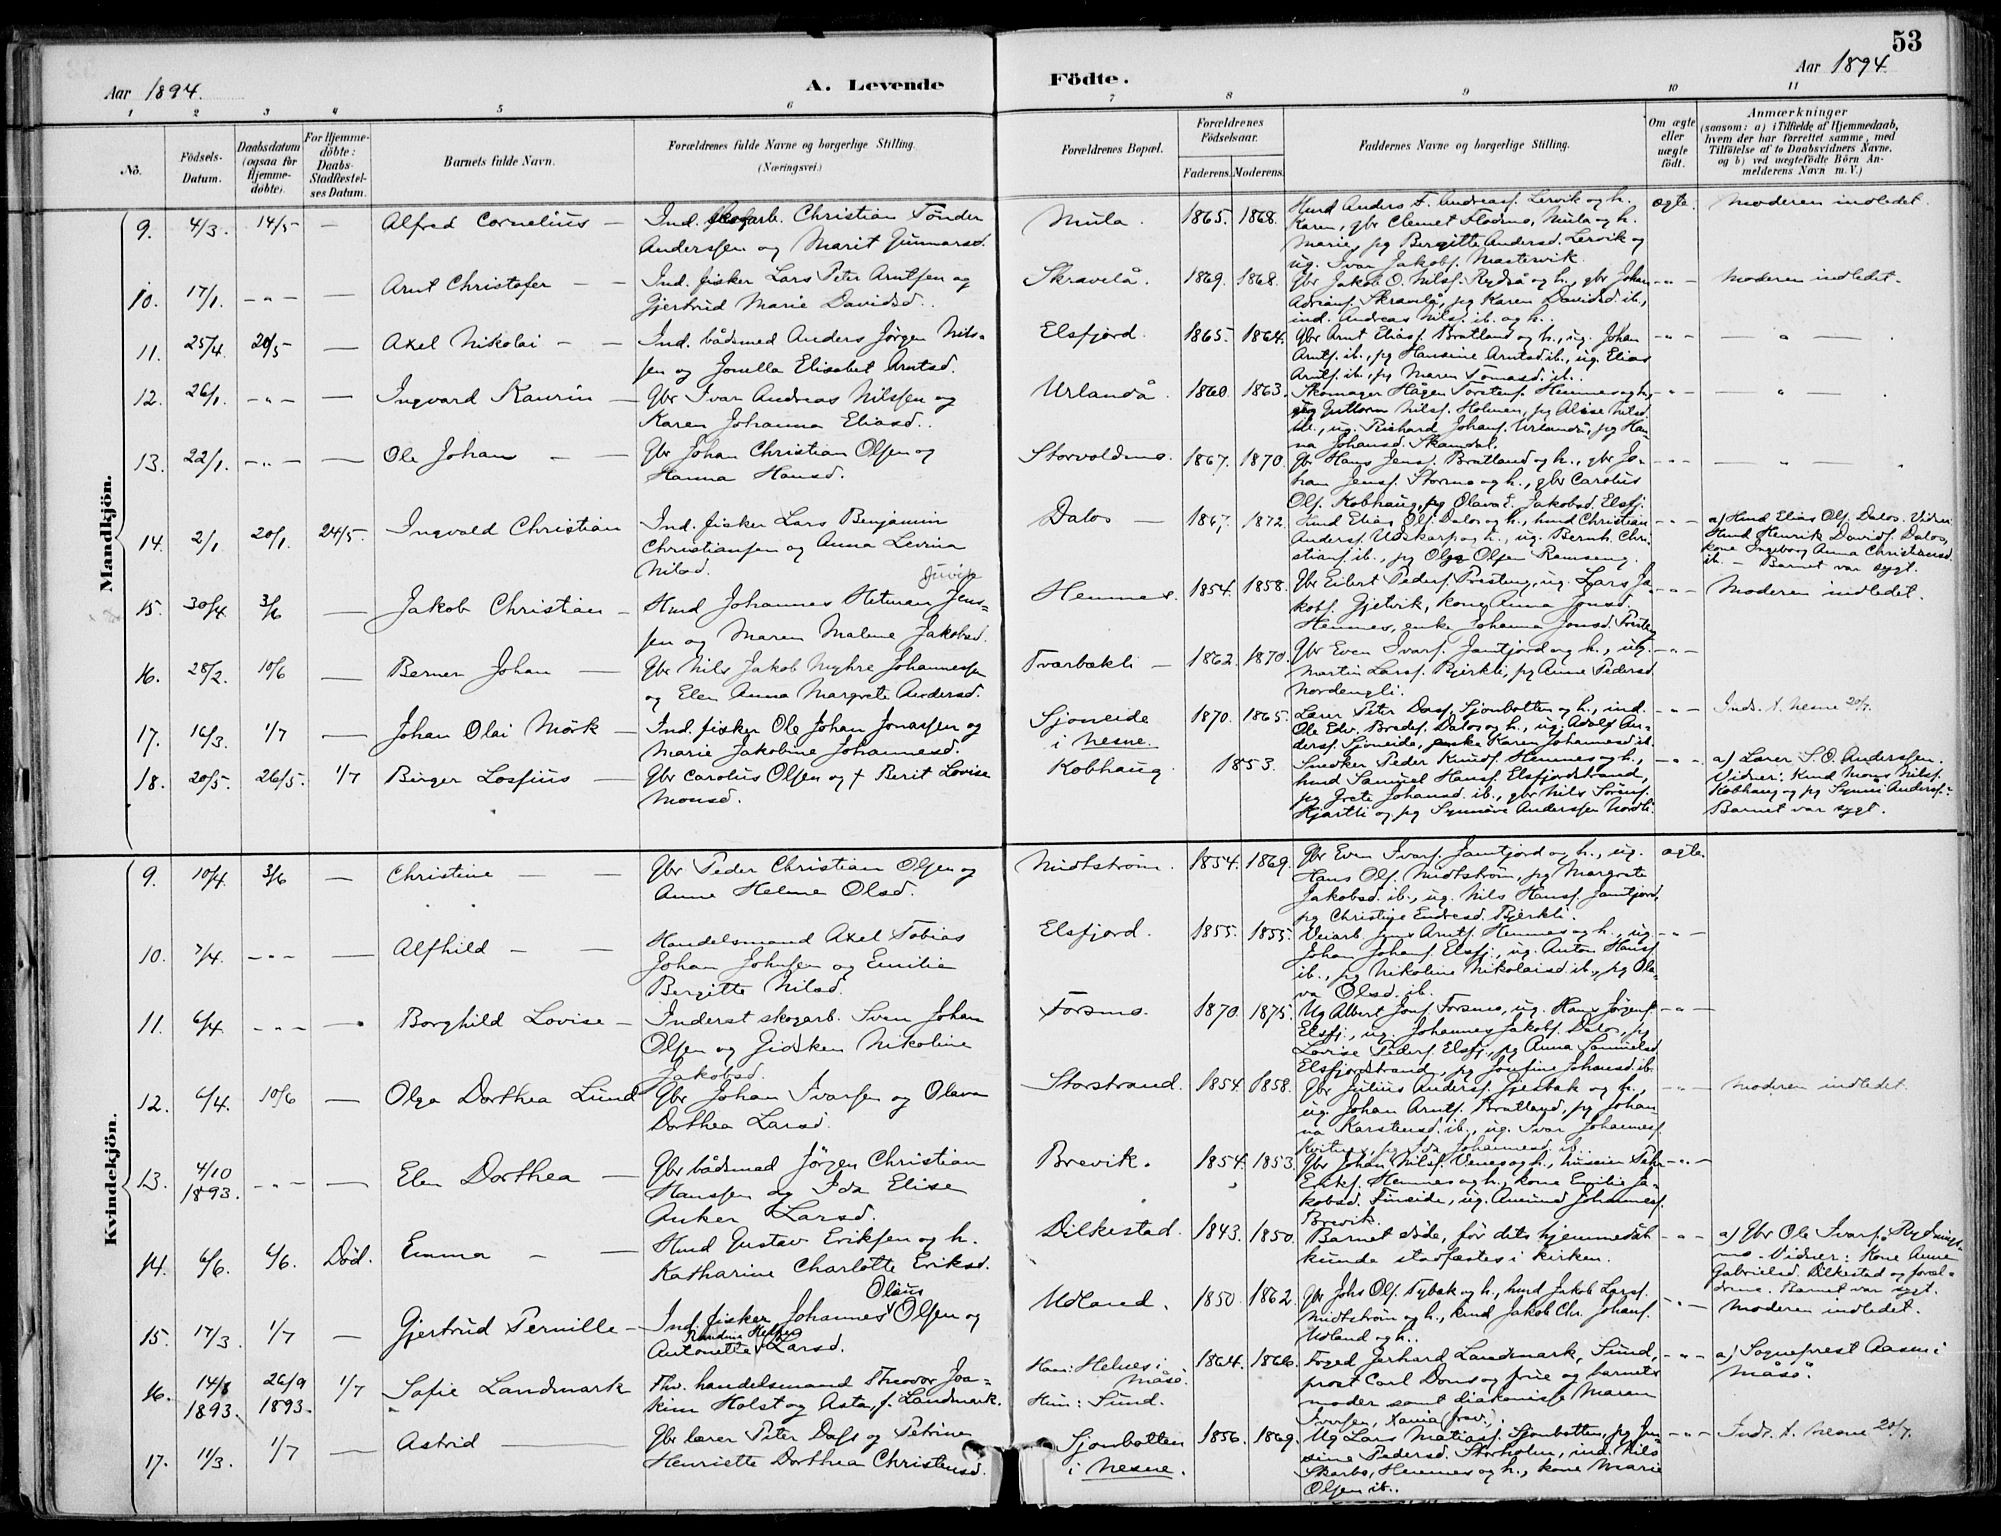 53
Aar 1894.
A. Levende
Födte.
Aar 1894.
1 2 3 4 5 6 7 8 9 10 11
No.
Födsels-
Datum.
Daabsdatum
(ogsaa for
Hjemme-
döbte).
For Hjemme-
döbte:
Daabs-
Stadfæstel-
ses Datum.
Barnets fulde Navn.
Forældrenes fulde Navne og borgerlige Stilling.
(Næringsvei.)
Forældrenes Bopæl.
Forældrenes
Födselsaar.
Faderens. Moderens.
Faddernes Navne og borgerlige Stilling.
Om ægte
eller
uægte
födt.
Anmærkninger
(saasom: a) i Tilfælde af Hjemmedaab,
hvem der har forrettet samme, med
Tilföielse af to Daabsvidners Navne,
og b) ved uegtefödte Börn An-
melderens Navn m. V.)
Mandkjön.
9. 4/3. 14/5 — Alfred Cornelius —
Ind. skogarb. Christian Tönder
Anderssen og Marit Gunnarsd.
Mula. 1865. 1868.
Husd Anders F. Andreasf. Lervik og h.
Karen, gbr Clemet Flodmo, Mula og h.
Marie, pg Bergitte Andersd. Lervik og
ug. Ivar Jakobf. Mastervik.
ægte. Moderen indledet.
10. 17/1. - " - — Arnt Christofer —
Ind. fisker Lars Peter Arntsen og
Gjertrud Marie Davidsd.
Skravlå. 1869. 1868.
Gbr Jakob O. Nilsf. Rydså og h., gbr Johan
Adrianf. Skravlå, pg Karen Davidsd ib.,
ind. Andreas Nilsf. ib. og h..
- " - Moderen indledet.
11. 25/4. 20/5 — Axel Nikolai —
Ind. bådsmed Anders Jörgen Nils-
sen og Jonella Elisabet Arntsd.
Elsfjord. 1865. 1864.
Gbr Arnt Eliasf. Bratland og h., ug. Johan
Arntf. ib., pg Hansine Arntsd. ib., ug. Elias
Arntf. ib., pg Maren Tomasd. ib..
- " - — " —
12. 26/1. - " - — Ingvard Kaurin —
Gbr Ivar Andreas Nilssen og
Karen Johanna Eliasd..
Urlandå. 1860. 1863.
Skomager Hågen Torstenf. Hemnes og h.,
ug Guttorm Nilsf. Holmen, pg Alise Nilsd.
ib., ug. Richard Johanf. Urlandå, pg Han-
na Johansd. Skamdal.
- " - — " —
13. 22/1. - " - — Ole Johan —
Gbr Johan Christian Olsen og
Hanna Hansd.
Storvoldmo. 1867. 1870.
Gbr Hans Jensf. Bratland og h., gbr Jo-
han Jensf. Stormo og h., gbr Carolus
Olf. Kobhaug, pg Olava E. Jakobsd. Elsfj.
- " - — " —
14. 2/1. 20/1. 24/5. Ingvald Christian
Ind. fisker Lars Benjamin
Christiansen og Anna Levina
Nilsd.
Dalos — 1867. 1872.
Husd Elias Olf. Dalos og h., husd Christian
Andersf. Utskarp og h., ug. Bernh. Chri-
stianf. ib., pg Olga Olsen Ramseng.
- " - a) Husd Elias Olf. Dalos. Vidner:
Husd Henrik Davidf. Dalos,
kone Ingeborg Anna Christensd
ib. — Barnet var sygt.
15. 30/4. 3/6 — Jakob Christian —
Husd Johannes Hetman Jens-
sen og Maren Malene Jakobsd.
Hemnes. 1854. 1858.
Gbr Eilert Pedersf. Presteng, ug. Lars Ja-
kobf. Gjetvik, kone Anna Jonsd.
Hemnes, enke Johanna Jonsd. Presteng
- " - Moderen indledet.
16. 28/2. 10/6 — Berner Johan —
Gbr Nils Jakob Myhre Johannessen
og Elen Anna Margrete Andersd.
Tvarbækli — 1862. 1870.
Gbr Even Ivarf. Jamtjord og h., ug.
Martin Larsf. Bjerkli, pg Anne Pedersd
Nordengli.
- " -
17. 16/3. 1/7 — Johan Olai Mörk —
Ind. fisker Ole Johan Jonassen og
Marie Jakobine Johannesd.
Sjoneide
i Nesne. 1870. 1865.
Lærer Peter Dasf. Sjonbotten og h., ind.
Ole Edv. Bredesf. Dalos og h., ug. Adolf An-
dersf. Sjoneide, enke Karen Johannesd ib.
- " - Indr. t. Nesne 20/7.
18. 20/5. 26/5. 1/7 Birger Losfius —
Gbr Carolus Olsen og f. Berit Lovise
Monsd.
Kobhaug 1853.
Snedker Peder Knudf. Hemnes og h.,
husd Samuel Hansf. Elsfjordstrand,
pg Grete Johansd. ib., gbr Nils Sörenf.
Hjartli og pg Synnöve Anderssen Nordli.
- " - a) Lærer S. O. Anderssen.
Vidner: Husd Mons Nilsf.
Kobhaug og pg Synnöve Andersf.
Barnet var sygt.
Kvindekjön.
9. 10/4. 3/6 — Christine —
Gbr Peder Christian Olsen og
Anne Helene Olsd.
Midtström. 1854. 1869.
Gbr Even Ivarf. Jamtjord og h., ug.
Hans Olf. Midtström, pg Margrete
Jakobsd. ib., ug. Nils Hansf. Jamtjord,
pg Christine Endresd. Bjerkli.
ægte.
10. 7/4. - " - — Alfhild —
Handelsmand Axel Tobias
Johan Johnsen og Emilie
Bergitte Nilsd.
Elsfjord. 1855. 1855.
Veiarb Jens Arntf. Hemnes og h., ug.
Johan Johanf. Elsfj., ug. Anton Hansf.
ib., pg Nikoline Nikolaisd. ib., pg Ola-
va Olsd. ib.
- " -
11. 6/4. - " - — Borghild Lovise —
Inderst skogarb. Sven Johan
Olsen og Gidsken Nikoline
Jakobsd.
Forsmo. 1870. 1875.
Ug Albert Jonf. Forsmo, ug. Hans Jörgenf.
Elsfj., ug. Johannes Jakobf. Dalos, pg
Lovise Pedersf. Elsfj., pg Anna Samuelsd
Elsfjordstrand, pg Josefine Johansd. ib.
- " -
12. 6/4. 10/6 — Olga Dorthea Lund
Gbr Johan Ivarsen og Olava
Dorthea Larsd.
Storstrand. 1854. 1858.
Gbr Julius Andersf. Gjesbak og h.,
ug. Johan Arntf. Bratland, pg Johan-
na Karstensd. ib., ug. Ivar Johannesf.
pg Ida Johannesd. ib..
- " - Moderen indledet.
13. 4/10
1893. - " - — Elen Dorthea —
Gbr bådsmed Jörgen Christian
Hanssen og Ida Elise
Anker Larsd.
Brevik. 1854. 1853.
Gbr Johan Nilsf. Venes og h., Peder
Erikf. Hemnes og h., kone Emilie Ja-
kobsd. Finneide, ug. Amund Johannesf.
Brevik.
- " -
14. 6/6. 6/6. Död. Emma —
Husd Gustav Eriksen og h.
Katharine Charlotte Eriksd.
Dilkestad. 1843. 1850.
Barnet döde, för dets hjemmedåb
kunde stadfæstes i kirken.
- " - a) Gbr Ole Ivarf. Rydnings-
mo. Vidner: Kone Anne
Gabrielsd. Dilkestad og foræl-
drene. Barnet var sygt.
15. 17/3. 1/7 — Gjertrud Pernille —
Ind. fisker Johannes Olaus Olsen og
Antonette Larsd.
Udland. 1850. 1862.
Gbr Johs Olf. Tybak og h., husd Jakob Larsf.
Midtström og h., husd Jakob Chr. Johanf.
Udland og h..
- " - Moderen indledet.
16. 14/8
1893. 26/9
1893. 1/7 Sofie Landmark
Fhv. handelsmand Theodor Joa-
kim Holst og Asta, f. Landmark.
Han: Helnes i
Måsö.
Hun: Sund. 1864. 1866.
Foged Gerhard Landmark, Sund,
prost Carl Dons og frue og barnets
moder samt diakonisse Maren
Iversen, Xania (frav.).
- " - a) Sogneprest Aas i
Måsö.
17. 11/3. 1/7 — Astrid —
Gbr lærer Peter Dass og Petrine
Henriette Dorthea Christensd.
Sjonbotten
i Nesne. 1856. 1869.
Ug Lars Matiasf. Sjonbotten, pg Jen-
sine Pedersd. Storholm, ind. Nils
Skarbo, Hemnes og h., kone Marie
Olsen ib..
- " - Indr. t. Nesne 20/7.